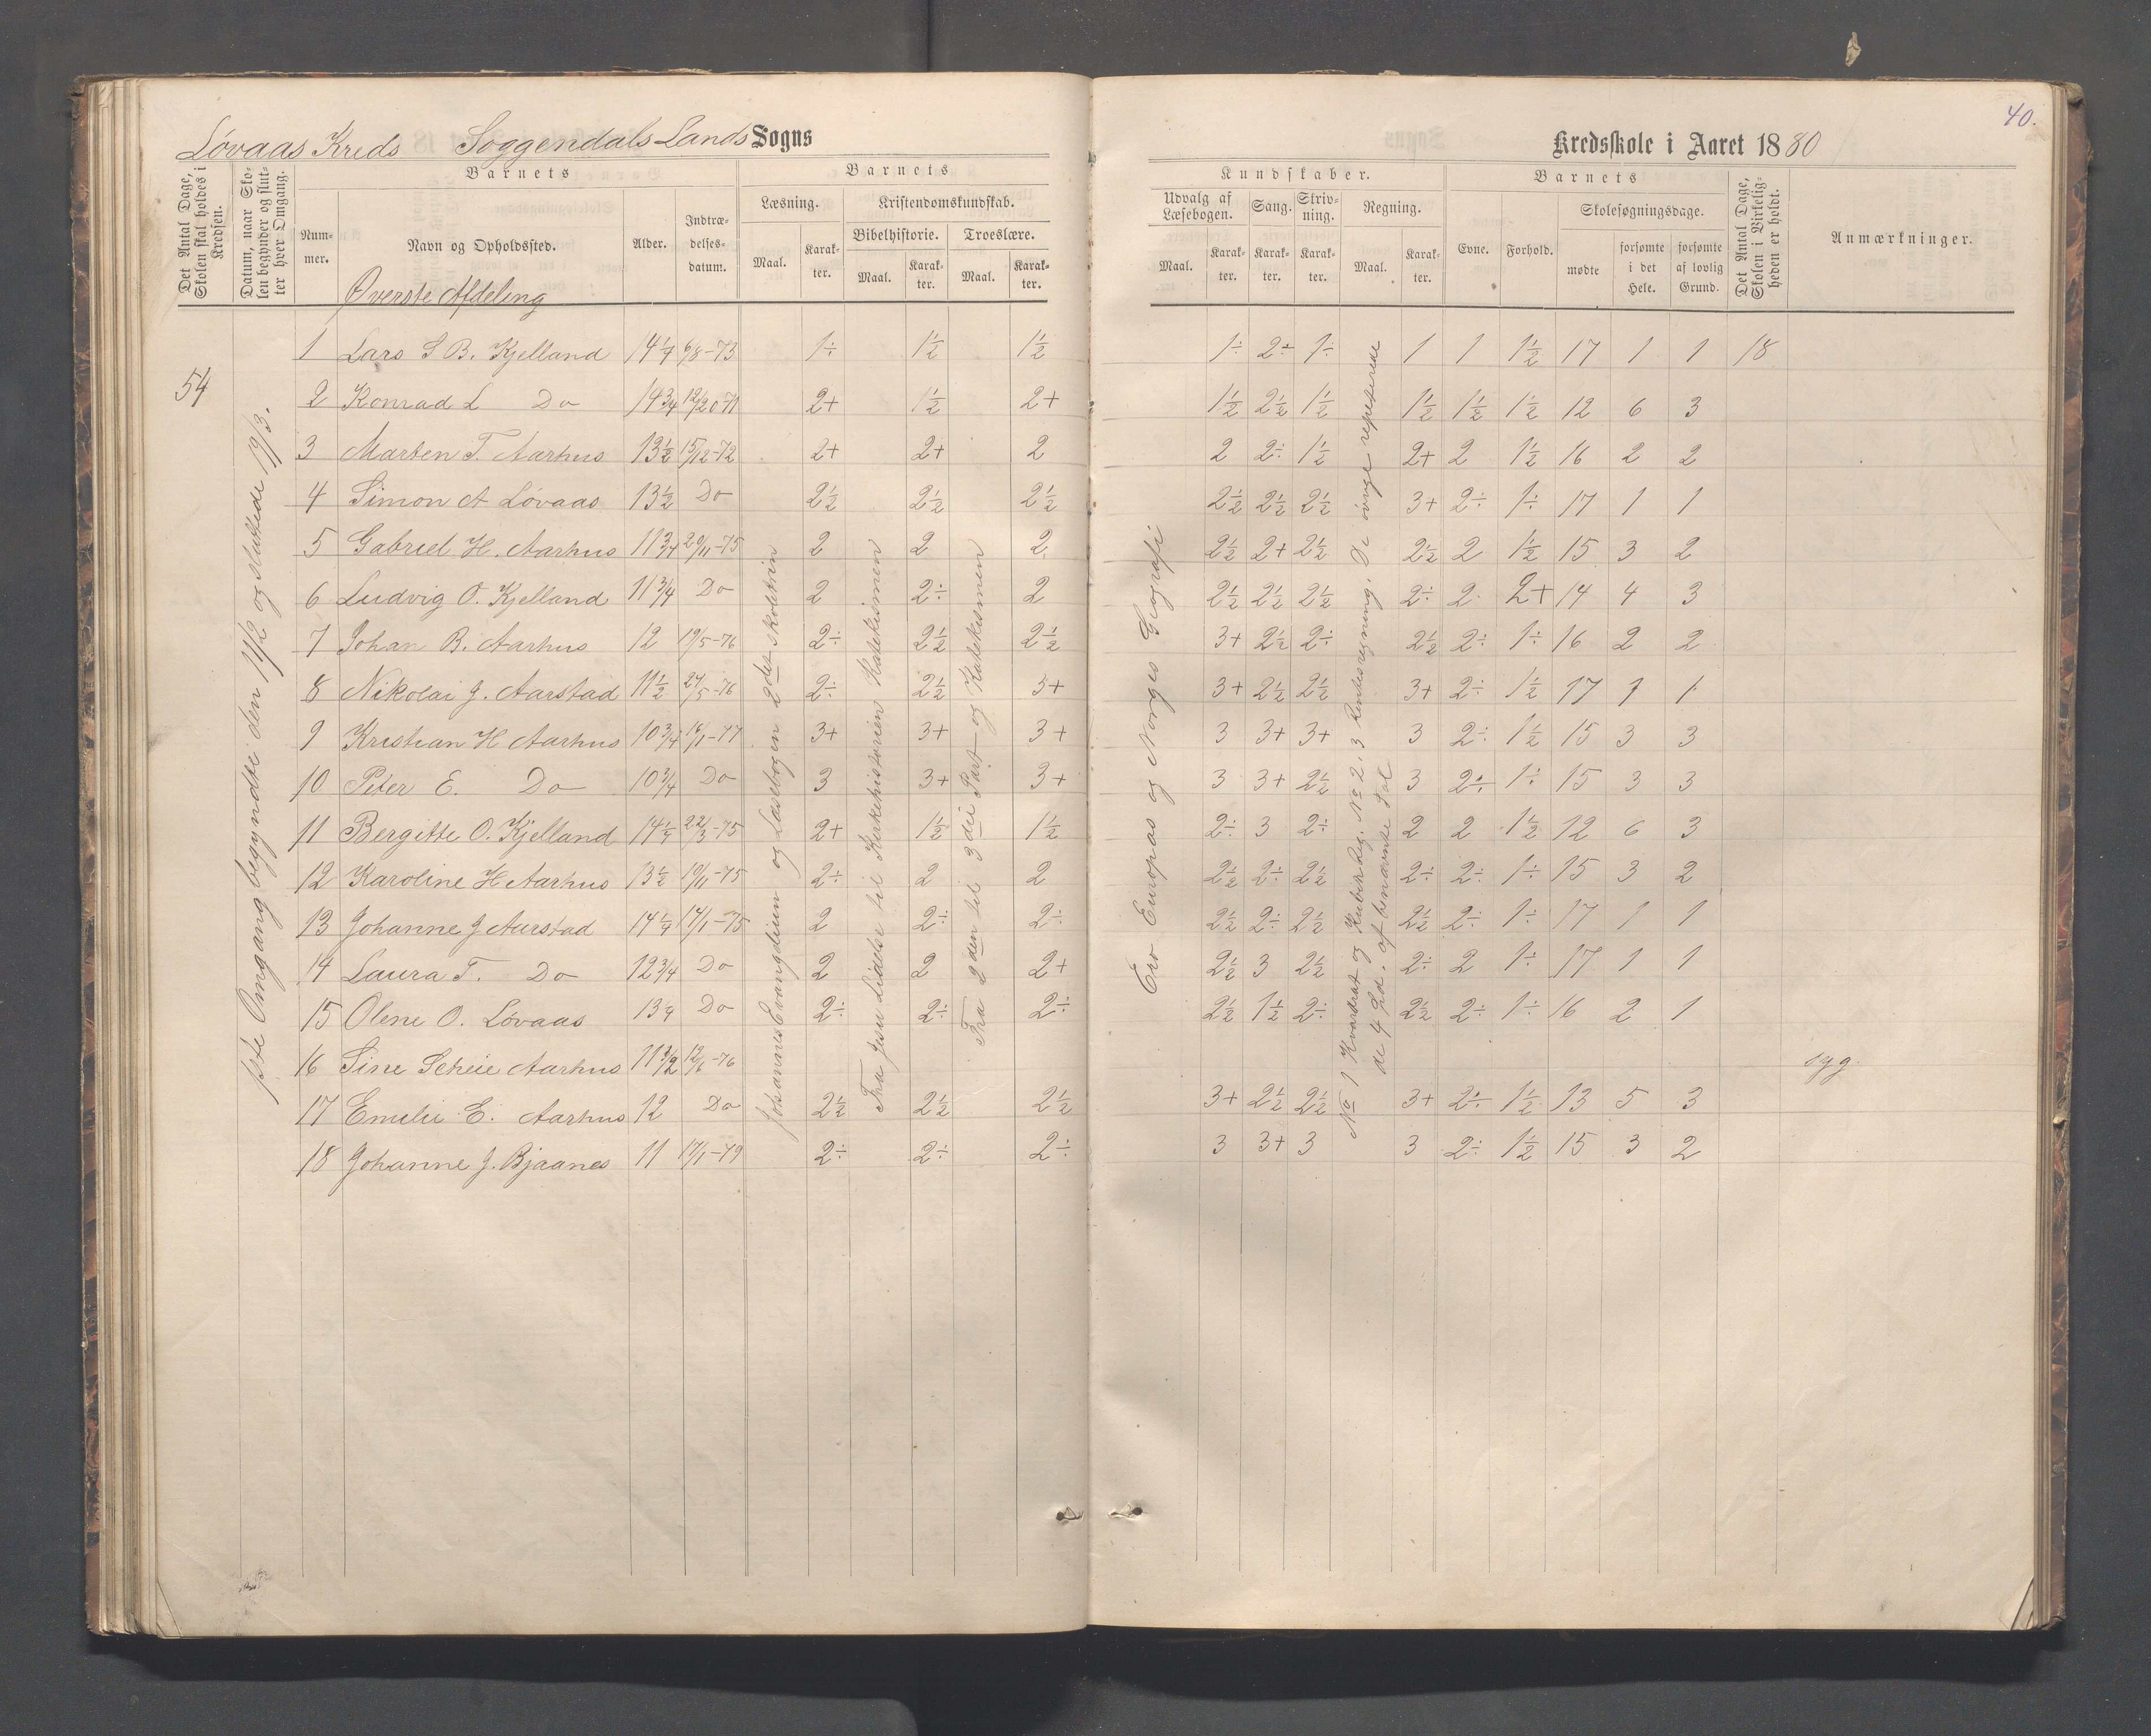 40.
Løvaas Kreds Soggendals Lands Sogns
Kredsskole i Aaret 1880
Det Antal Dage, Skolen skal holdes i Kredsen.
Datum, naar Skolen begynder og slutter hver Omgang.
Barnets
Nummer.
Navn og Opholdssted.
Alder.
Indtrædelsesdatum.
Barnets
Læsning.
Maal.
Karakter.
Kristendomskundskab.
Bibelhistorie.
Maal.
Karakter.
Troeslære.
Maal.
Karakter.
Kundskaber.
Udvalg af Læsebogen.
Maal.
Karakter.
Sang.
Karakter.
Skrivning.
Karakter.
Regning.
Maal.
Karakter.
Barnets
Evne.
Forhold.
Skolesøgningsdage.
mødte
forsømte i det Hele.
forsømte af lovlig Grund.
Det Antal Dage, Skolen i Virkeligheden er holdt.
Anmærkninger.
Øverste Afdeling
54
1ste Omgang begyndte den 11/2 og sluttede 19/3.
Johannes Evangelium og Læsebogen 2det Skoletrin
Fra Jesu Lidelse til Kirkehistorien Katekismen
Fra 2den til 3die Part og Katekismen
Europas og Norges Geografi
No 1 Kvardrat og Kubikreg. No 2, 3 Rentesregning. De øvrige repeterede
de 4 Rd. af benævnte Tal
1 Lars S B. Kjelland 14 1/4 6/8-73 1÷ 1 1/2 1 1/2 1÷ 2÷ 1÷ 1 1 1 1/2 17 1 1 18
2 Konrad L Do 14 3/4 2+ 1 1/2 2+ 1 1/2 2 1/2 1 1/2 1 1/2 1 1/2 1 1/2 12 6 3
3 Marten T. Aarhus 13 1/2 15/12-72 2+ 2+ 2 2 2÷ 1 1/2 2+ 2 1 1/2 16 2 2
4 Simon A Løvaas 13 1/2 Do 2 1/2 2 1/2 2 1/2 2 1/2 2 1/2 2 1/2 3+ 2÷ 1÷ 17 1 1
5 Gabriel H. Aarhus 11 3/4 29/11-75 2 2 2 2 1/2 2+ 2 1/2 2 1/2 2 1 1/2 15 3 2
6 Ludvig O. Kjelland 11 3/4 Do 2 2÷ 2 2 1/2 2 1/2 2 1/2 2÷ 2 2+ 14 4 3
7 Johan B. Aarhus 12 19/5-76 2÷ 2 1/2 2 1/2 3+ 2 1/2 2÷ 2 1/2 2÷ 1÷ 16 2 2
8 Nikolai J. Aarstad 11 1/2 24/5-76 2÷ 2 1/2 3+ 3+ 2 1/2 2 1/2 3+ 2÷ 1 1/2 17 1 1
9 Kristian H Aarhus 10 3/4 16/1-77 3+ 3+ 3+ 3 3+ 3+ 3 2÷ 1 1/2 15 3 3
10 Peter E. Do 10 3/4 Do 3 3+ 3+ 3 3+ 2 1/2 3 2÷ 1÷ 15 3 3
11 Bergitte O. Kjelland 14 1/4 22/3-75 2+ 1 1/2 1 1/2 2÷ 3 2÷ 2 2 1 1/2 12 6 3
12 Karoline H Aarhus 13 1/2 19/11-75 2÷ 2 2 2 1/2 2÷ 2 1/2 2÷ 2÷ 1÷ 15 3 2
13 Johanne J Aarstad 14 1/4 14/1-75 2 2÷ 2÷ 2 1/2 2÷ 2 1/2 2 1/2 2÷ 1÷ 17 1 1
14 Laura T. Do 12 3/4 Do 2 2 2+ 2 1/2 3 2 1/2 2÷ 2 1÷ 17 1 1
15 Olene O. Løvaas 13 1/4 Do 2÷ 2÷ 2÷ 2 1/2 1 1/2 2÷ 2 1/2 2÷ 1÷ 16 2 1
16 Sine Scheie Aarhus 11 3/2 12/6-76 syg
17 Emilie E. Aarhus 12 Do 2 1/2 2 1/2 2 1/2 3+ 2 1/2 2 1/2 3+ 2÷ 1 1/2 13 5 3
18 Johanne J. Bjaanes 11 17/1-79 2÷ 2÷ 2÷ 3 3+ 3 3 2÷ 1 1/2 15 3 2